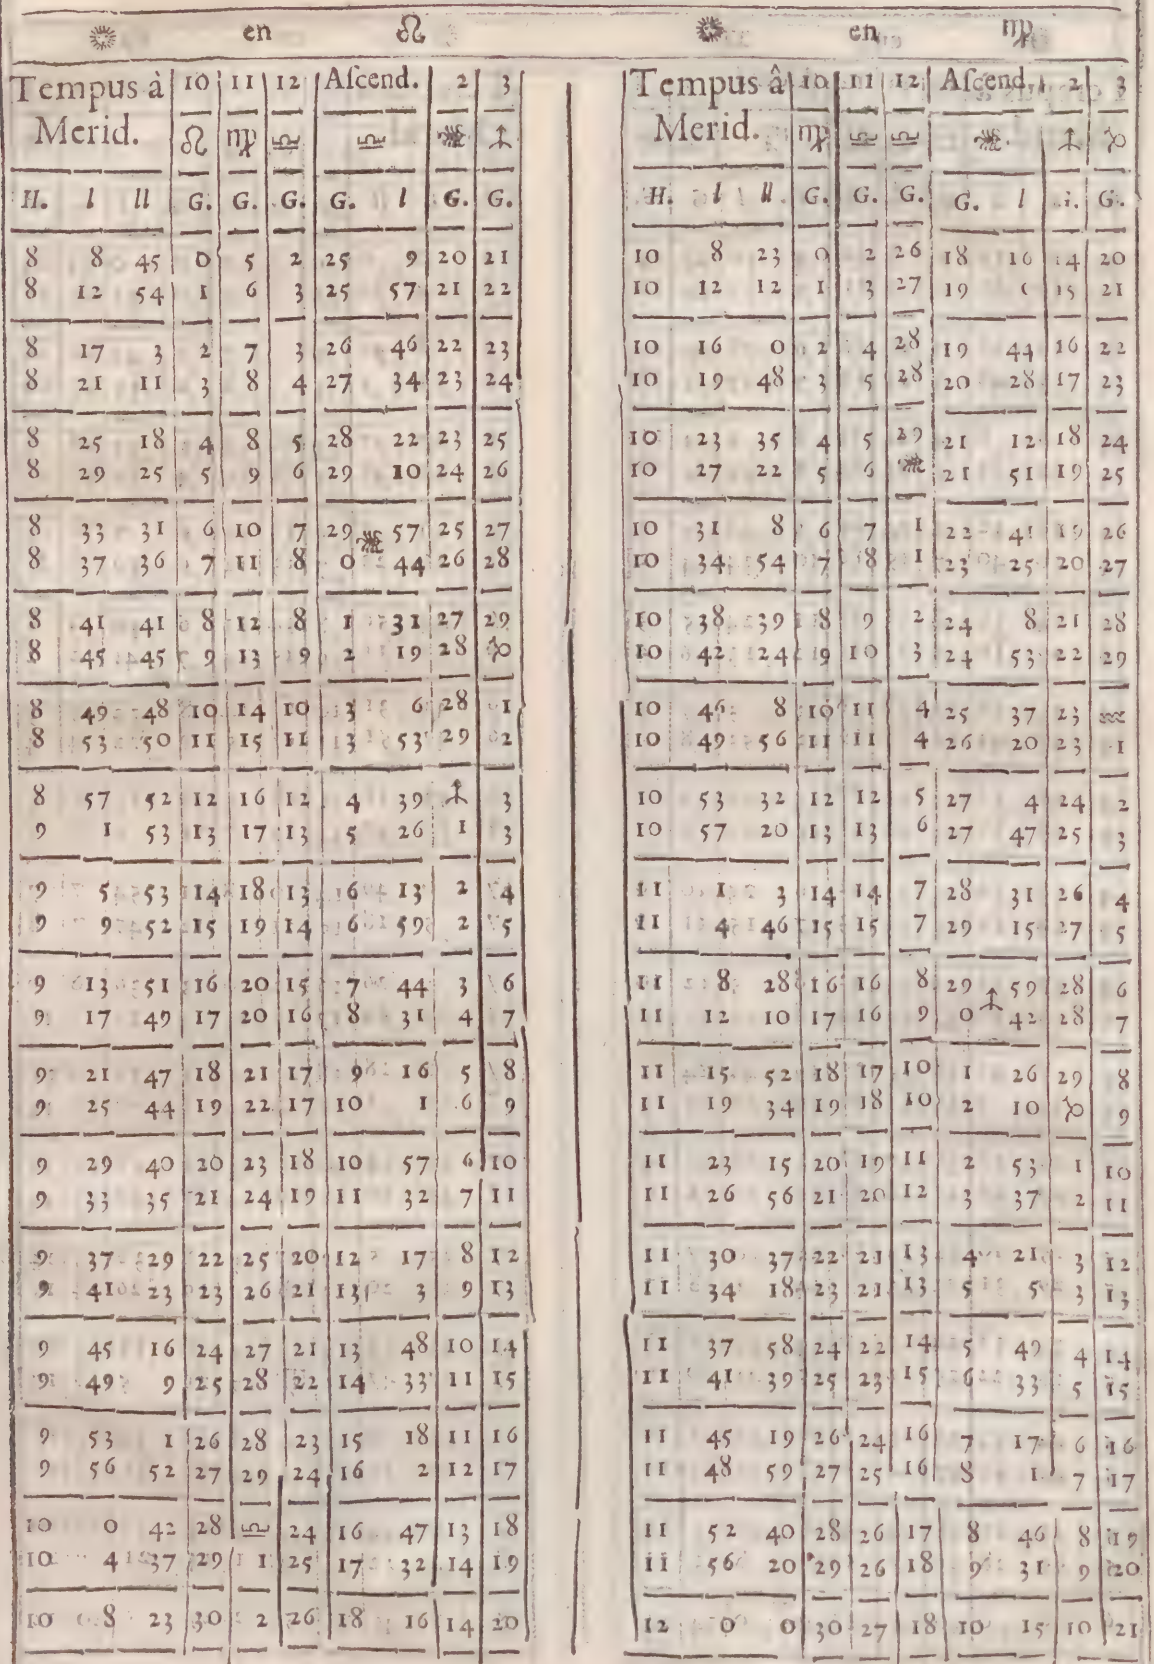 ☼ en ♌
Tempus à | 10 | 11 | 12 | Aſcend. | 2 | 3
Merid. | ♌ | ♍ | ♎ | ♎ | ♏ | ♐
H. l ll | G. | G. | G. | G. l | G. | G.
8 8 45 | 0 | 5 | 2 | 25 9 | 20 | 21
8 12 54 | 1 | 6 | 3 | 25 57 | 21 | 22
8 17 3 | 2 | 7 | 3 | 26 46 | 22 | 23
8 21 11 | 3 | 8 | 4 | 27 34 | 23 | 24
8 25 18 | 4 | 8 | 5 | 28 22 | 23 | 25
8 29 25 | 5 | 9 | 6 | 29 10 | 24 | 26
8 33 31 | 6 | 10 | 7 | 29 57 | 25 | 27
8 37 36 | 7 | 11 | 8 | 0 ♏ 44 | 26 | 28
8 41 41 | 8 | 12 | 8 | 1 31 | 27 | 29
8 45 45 | 9 | 13 | 9 | 2 19 | 28 | ♑
8 49 48 | 10 | 14 | 10 | 3 6 | 28 | 1
8 53 50 | 11 | 15 | 11 | 3 53 | 29 | 2
8 57 52 | 12 | 16 | 12 | 4 39 | ♐ | 3
9 1 53 | 13 | 17 | 13 | 5 26 | 1 | 3
9 5 53 | 14 | 18 | 13 | 6 13 | 2 | 4
9 9 52 | 15 | 19 | 14 | 6 59 | 2 | 5
9 13 51 | 16 | 20 | 15 | 7 44 | 3 | 6
9 17 49 | 17 | 20 | 16 | 8 31 | 4 | 7
9 21 47 | 18 | 21 | 17 | 9 16 | 5 | 8
9 25 44 | 19 | 22 | 17 | 10 1 | 6 | 9
9 29 40 | 20 | 23 | 18 | 10 57 | 6 | 10
9 33 35 | 21 | 24 | 19 | 11 32 | 7 | 11
9 37 29 | 22 | 25 | 20 | 12 17 | 8 | 12
9 41 23 | 23 | 26 | 21 | 13 3 | 9 | 13
9 45 16 | 24 | 27 | 21 | 13 48 | 10 | 14
9 49 9 | 25 | 28 | 22 | 14 33 | 11 | 15
9 53 1 | 26 | 28 | 23 | 15 18 | 11 | 16
9 56 52 | 27 | 29 | 24 | 16 2 | 12 | 17
10 0 42 | 28 | ♎ | 24 | 16 47 | 13 | 18
10 4 37 | 29 | 1 | 25 | 17 32 | 14 | 19
10 8 23 | 30 | 2 | 26 | 18 16 | 14 | 20
☼ en ♍
Tempus â | 10 | 11 | 12 | Aſcend. | 2 | 3
Merid. | ♍ | ♎ | ♎ | ♏ | ♐ | ♑
H. l ll | G. | G. | G. | G. l | G. | G.
10 8 23 | 0 | 2 | 26 | 18 16 | 14 | 20
10 12 12 | 1 | 3 | 27 | 19 | 15 | 21
10 16 0 | 2 | 4 | 28 | 19 44 | 16 | 22
10 19 48 | 3 | 5 | 28 | 20 28 | 17 | 23
10 23 35 | 4 | 5 | 29 | 21 12 | 18 | 24
10 27 22 | 5 | 6 | ♏ | 21 51 | 19 | 25
10 31 8 | 6 | 7 | 1 | 22 41 | 19 | 26
10 34 54 | 7 | 8 | 1 | 23 25 | 20 | 27
10 38 39 | 8 | 9 | 2 | 24 8 | 21 | 28
10 42 24 | 9 | 10 | 3 | 24 53 | 22 | 29
10 46 8 | 10 | 11 | 4 | 25 37 | 23 | ♒
10 49 56 | 11 | 11 | 4 | 26 20 | 23 | 1
10 53 32 | 12 | 12 | 5 | 27 4 | 24 | 2
10 57 20 | 13 | 13 | 6 | 27 47 | 25 | 3
11 1 3 | 14 | 14 | 7 | 28 31 | 26 | 4
11 4 46 | 15 | 15 | 7 | 29 15 | 27 | 5
11 8 28 | 16 | 16 | 8 | 29 59 | 28 | 6
11 12 10 | 17 | 16 | 9 | 0 ♐ 42 | 28 | 7
11 15 52 | 18 | 17 | 10 | 1 26 | 29 | 8
11 19 34 | 19 | 18 | 10 | 2 10 | ♑ | 9
11 23 15 | 20 | 19 | 11 | 2 53 | 1 | 10
11 26 56 | 21 | 20 | 12 | 3 37 | 2 | 11
11 30 37 | 22 | 21 | 13 | 4 21 | 3 | 12
11 34 18 | 23 | 21 | 13 | 5 5 | 3 | 13
11 37 58 | 24 | 22 | 14 | 5 49 | 4 | 14
11 41 39 | 25 | 23 | 15 | 6 33 | 5 | 15
11 45 19 | 26 | 24 | 16 | 7 17 | 6 | 16
11 48 59 | 27 | 25 | 16 | 8 1 | 7 | 17
11 52 40 | 28 | 26 | 17 | 8 46 | 8 | 19
11 56 20 | 29 | 26 | 18 | 9 31 | 9 | 20
12 0 0 | 30 | 27 | 18 | 10 15 | 10 | 21